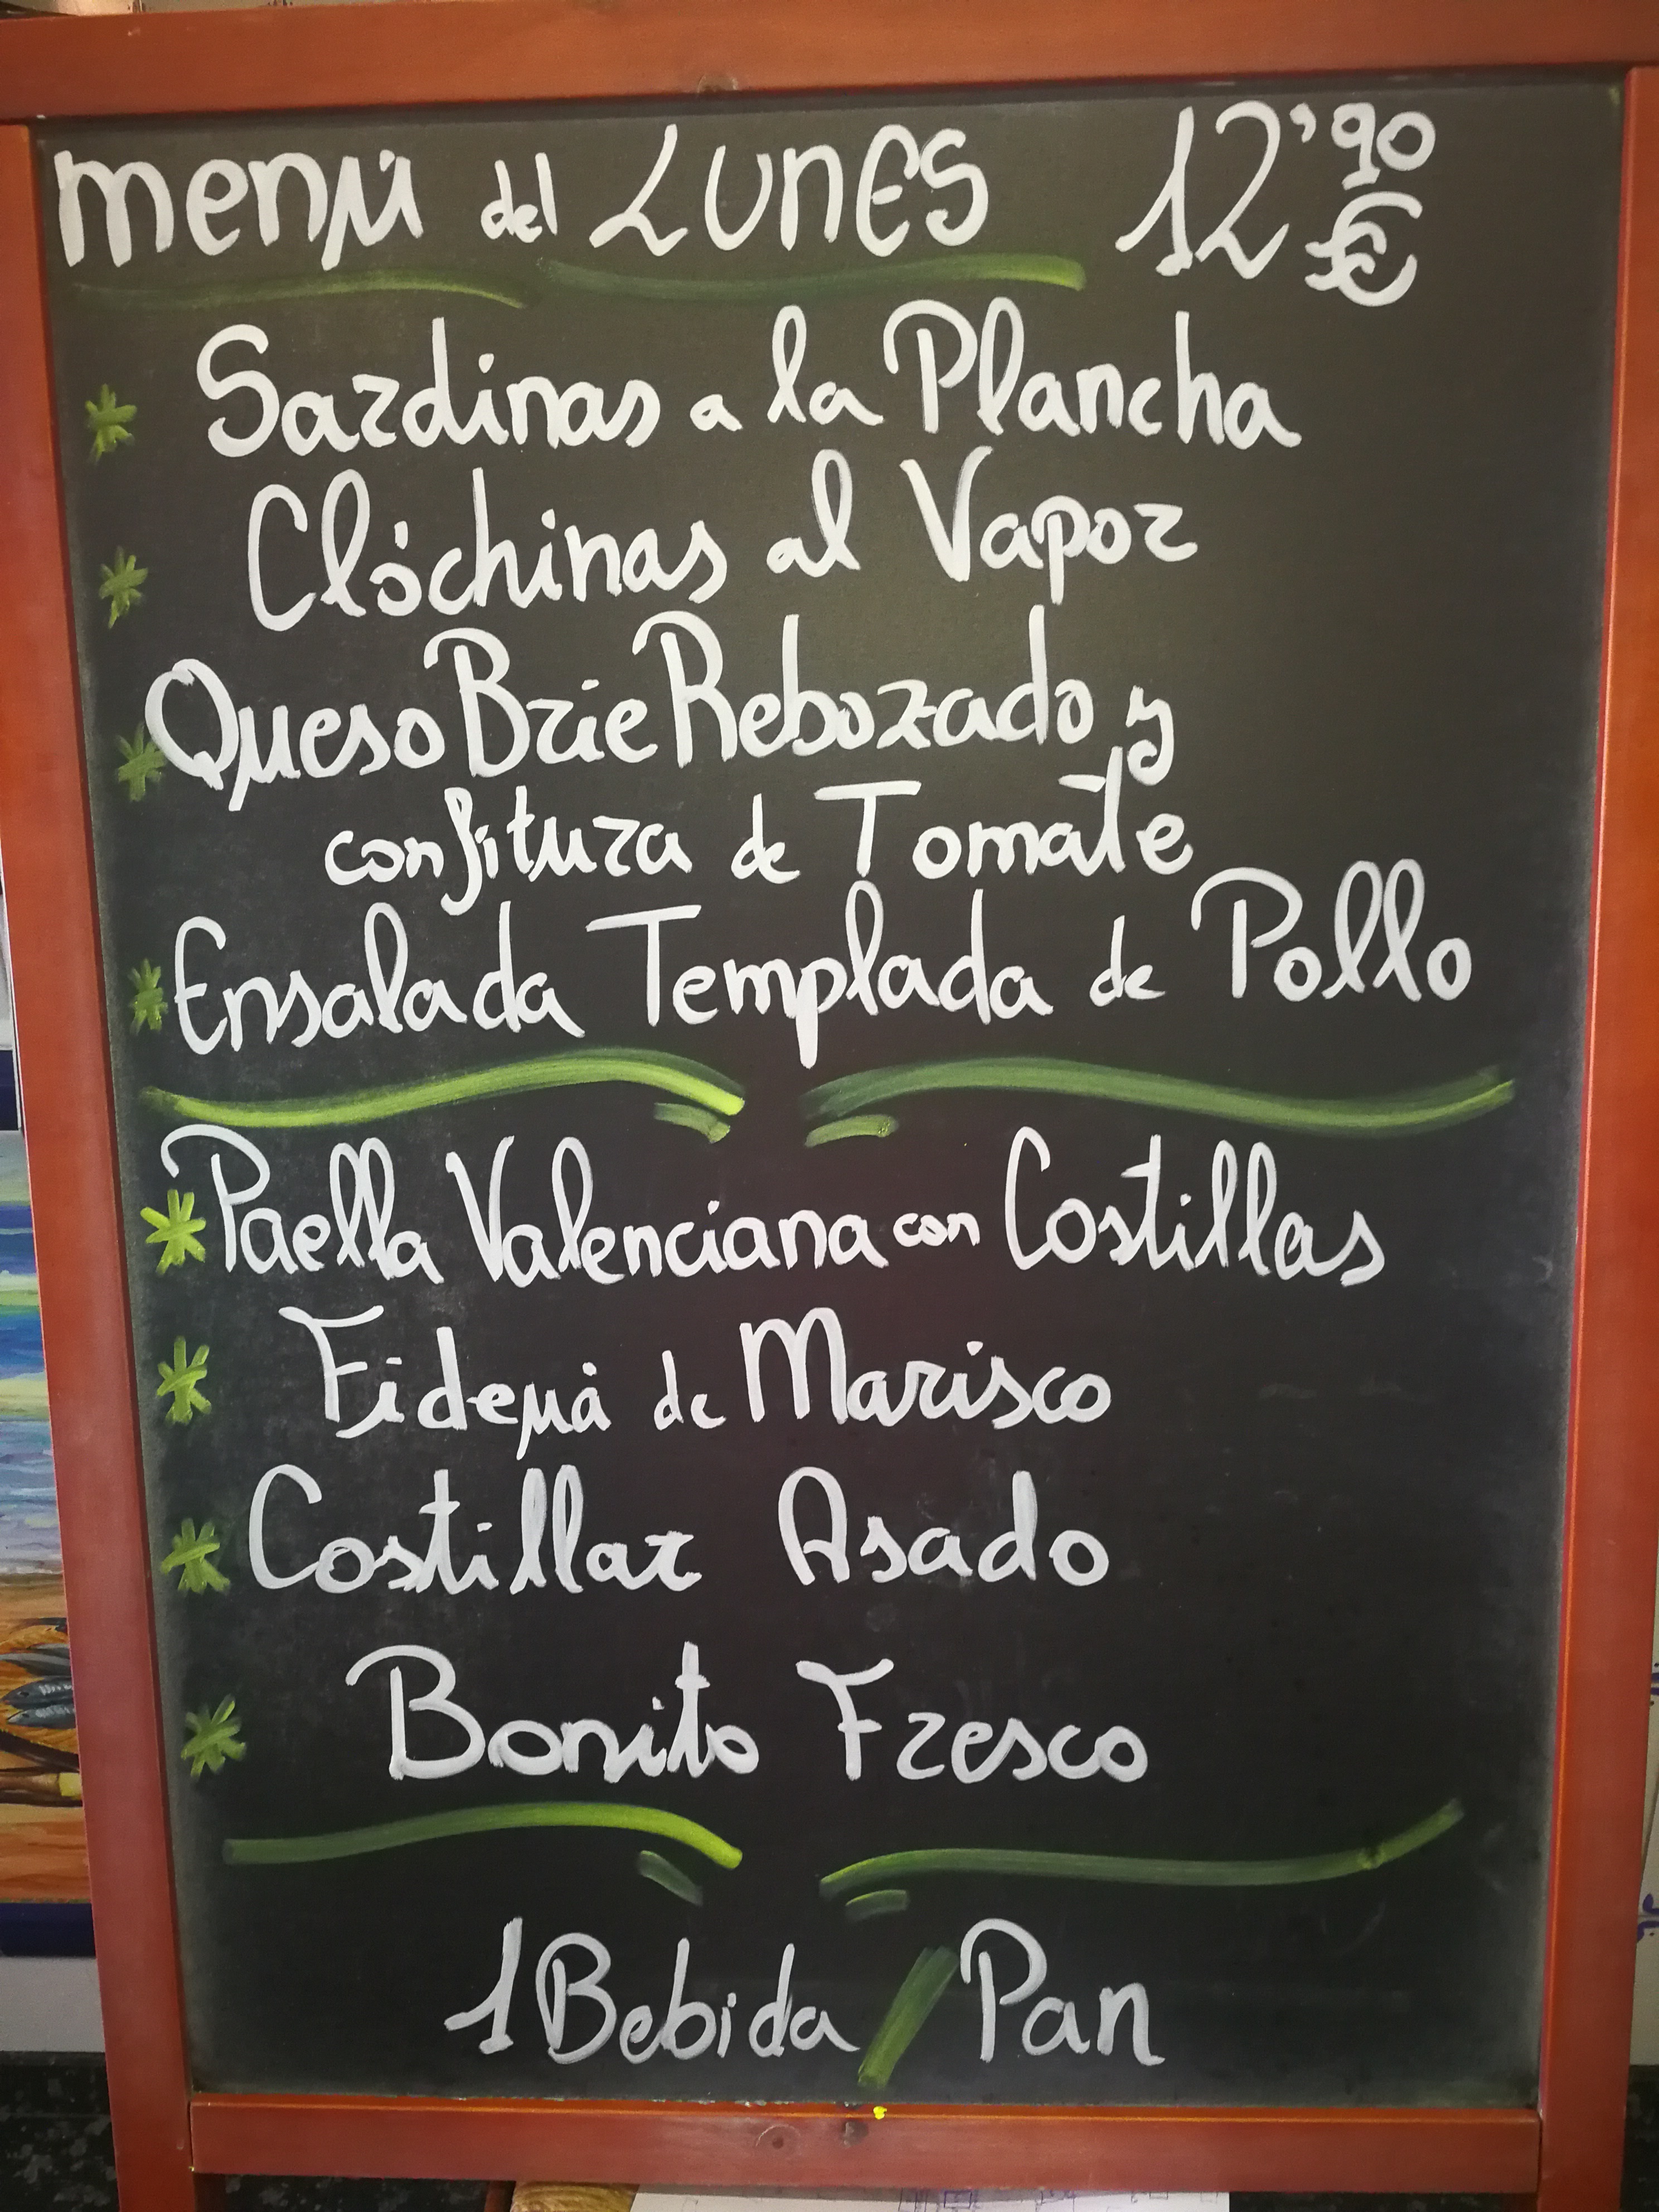 menú del LUNES 12'90 €
* Sardinas a la Plancha
* Clóchinas al Vapor
* Queso Brie Rebozado y
confitura de Tomate
* Ensalada Templada de Pollo
* Paella Valenciana con Costillas
* Fideuá de Marisco
* Costillar Asado
* Bonito Fresco
1 Bebida / Pan